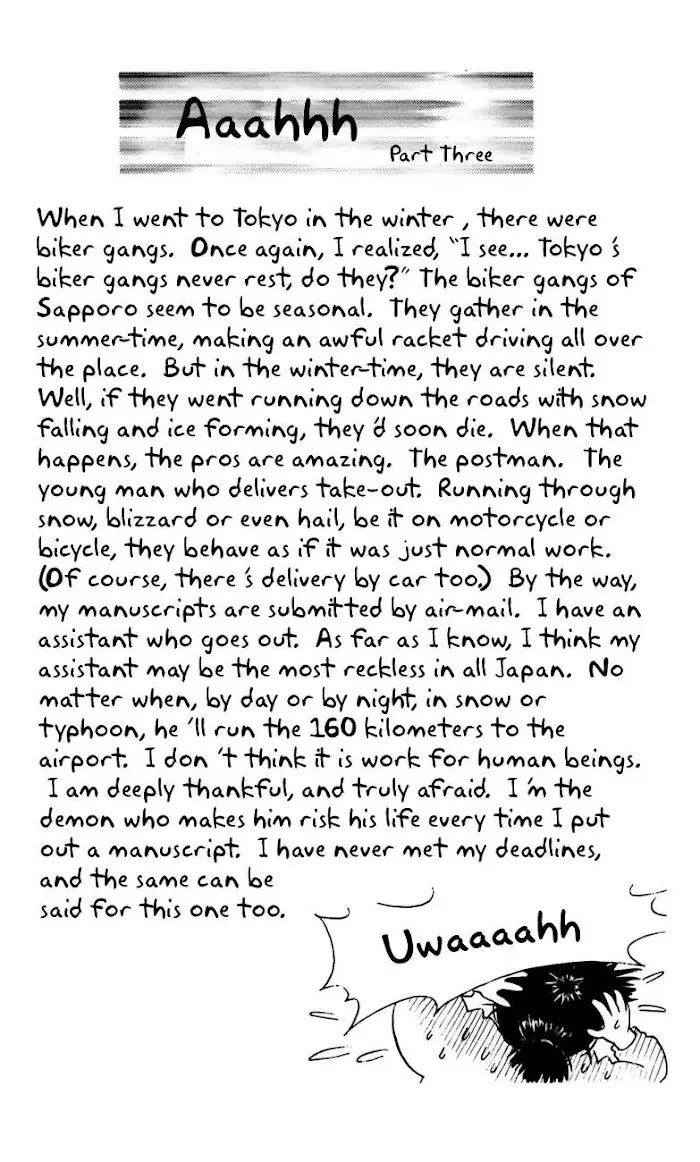 Aaahhh
Part Three
When I went to Tokyo in the winter , there were
biker gangs. Once again, I realized, “I see... Tokyo 's
biker gangs never rest, do they?” The biker gangs of
Sapporo seem to be seasonal. They gather in the
summer-time, making an awful racket driving all over
the place. But in the winter-time, they are silent.
Well, if they went running down the roads with snow
falling and ice forming, they 'd soon die. When that
happens, the pros are amazing. The postman. The
young man who delivers take-out. Running through
snow, blizzard or even hail, be it on motorcycle or
bicycle, they behave as if it was just normal work.
(Of course, there 's delivery by car too.) By the way,
my manuscripts are submitted by air-mail. I have an
assistant who goes out. As far as I know, I think my
assistant may be the most reckless in all Japan. No
matter when, by day or by night, in snow or
typhoon, he 'll run the 160 kilometers to the
airport. I don 't think it is work for human beings.
I am deeply thankful, and truly afraid. I 'm the
demon who makes him risk his life every time I put
out a manuscript. I have never met my deadlines,
and the same can be
said for this one too.
Uwaaaahh